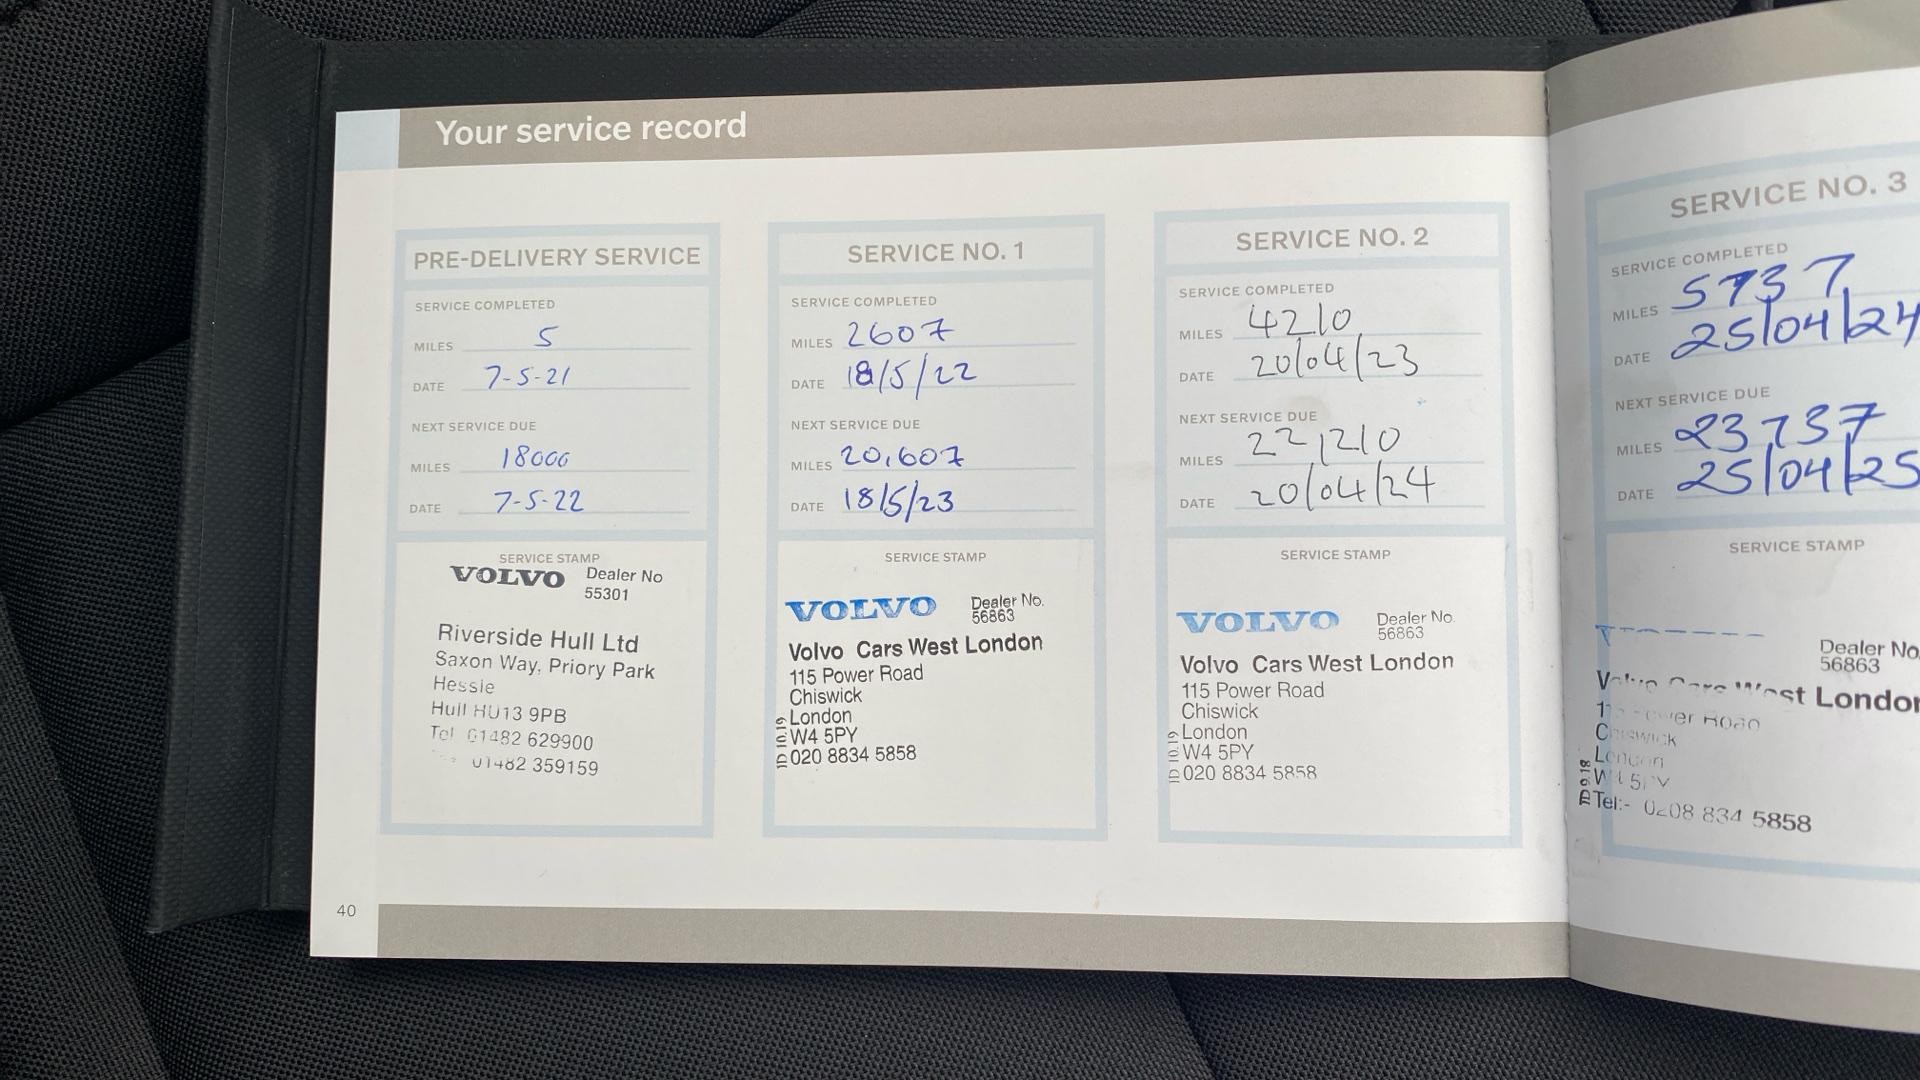 Your service record
PRE-DELIVERY SERVICE
SERVICE COMPLETED
MILES 5
DATE 7-5-21
NEXT SERVICE DUE
MILES 18000
DATE 7-5-22
SERVICE STAMP
VOLVO Dealer No
55301
Riverside Hull Ltd
Saxon Way, Priory Park
Hessle
Hull HU13 9PB
Tel 01482 629900
01482 359159
SERVICE NO. 1
SERVICE COMPLETED
MILES 2607
DATE 18/5/22
NEXT SERVICE DUE
MILES 20,607
DATE 18/5/23
SERVICE STAMP
VOLVO Dealer No.
56863
Volvo Cars West London
115 Power Road
Chiswick
London
W4 5PY
020 8834 5858
ID 10.19
SERVICE NO. 2
SERVICE COMPLETED
MILES 4210
DATE 20/04/23
NEXT SERVICE DUE
MILES 22,210
DATE 20/04/24
SERVICE STAMP
VOLVO Dealer No.
56863
Volvo Cars West London
115 Power Road
Chiswick
London
W4 5PY
020 8834 5858
ID 10.19
SERVICE NO. 3
SERVICE COMPLETED
MILES 5737
DATE 25/04/24
NEXT SERVICE DUE
MILES 23,737
DATE 25/04/25
SERVICE STAMP
Dealer No
56863
Volvo Cars West London
Power Road
Chiswick
London
W4 5PY
Tel:- 0208 834 5858
ID 9.18
40